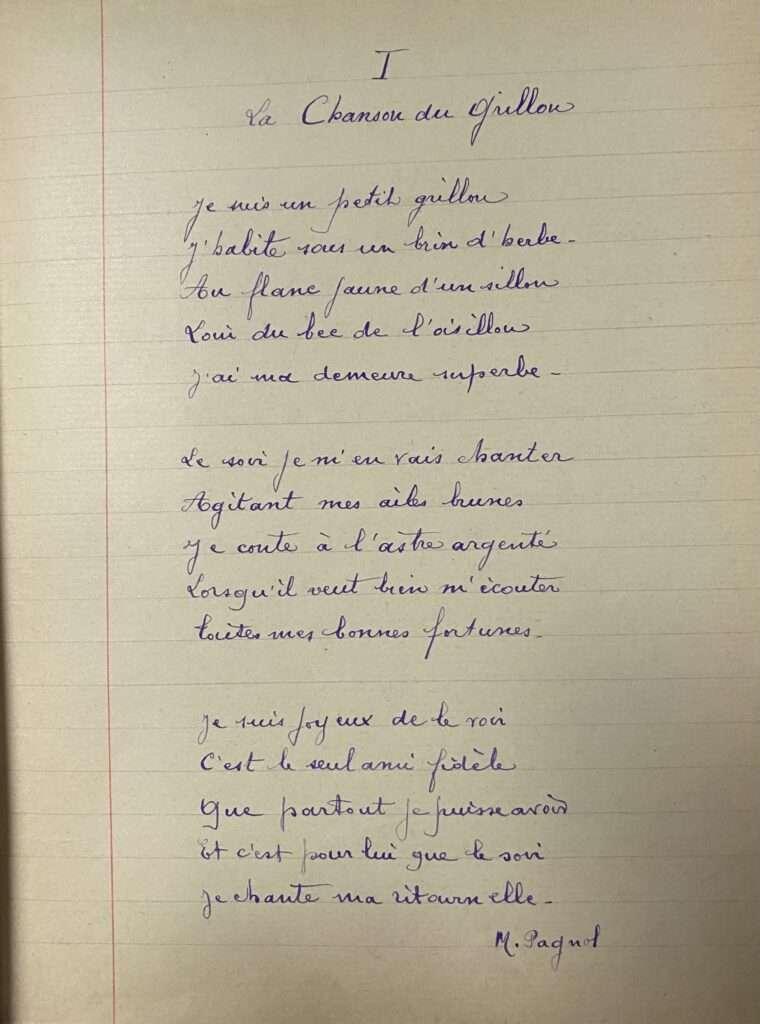 I
La Chanson du Grillon
Je suis un petit grillon
J'habite sous un brin d'herbe -
Au flanc jaune d'un sillon
Loin du bec de l'oisillon
J'ai ma demeure superbe -
Le soir je m'en vais chanter
Agitant mes ailes brunes
Je conte à l'astre argenté
Lorsqu'il veut bien m'écouter
Toutes mes bonnes fortunes -
Je suis joyeux de le voir
C'est le seul ami fidèle
Que partout je puisse avoir
Et c'est pour lui que le soir
Je chante ma ritournelle -
M. Pagnol